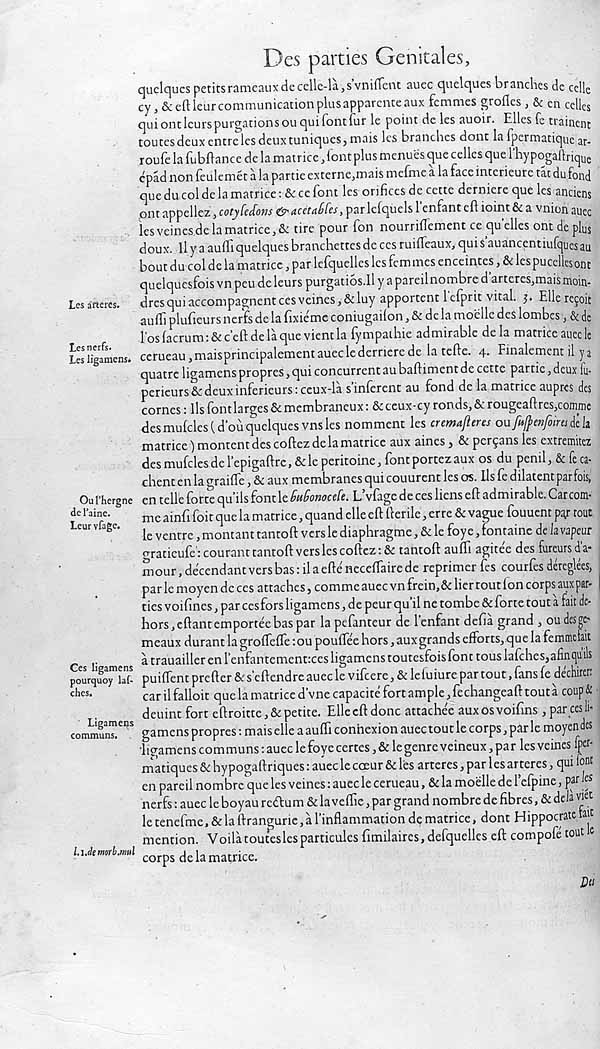 Des parties Genitales,
quelques petits rameaux de celle-là, s'vniſſent auec quelques branches de celle
cy, & eſt leur communication plus apparente aux femmes groſſes, & en celles
qui ont leurs purgations ou qui ſont ſur le point de les auoir. Elles ſe trainent
toutes deux entre les deux tuniques, mais les branches dont la ſpermatique ar-
rouſe la ſubſtance de la matrice, ſont plus menuës que celles que l'hypogaſtrique
épãd non ſeulemēt à la partie externe, mais meſme à la face interieure tãt du fond
que du col de la matrice: & ce ſont les orifices de cette derniere que les anciens
ont appellez, cotyledons & acetables, par leſquels l'enfant eſt ioint & a vnion auec
les veines de la matrice, & tire pour ſon nourriſſement ce qu'elles ont de plus
doux. Il y a auſſi quelques branchettes de ces ruiſſeaux, qui s'auancent iuſques au
bout du col de la matrice, par leſquelles les femmes enceintes, & les pucelles ont
quelquesfois vn peu de leurs purgatiõs. Il y a pareil nombre d'arteres, mais moin-
Les arteres.
dres qui accompagnent ces veines, & luy apportent l'eſprit vital. 3. Elle reçoit
auſſi pluſieurs nerfs de la ſixiéme coniugaiſon, & de la moëlle des lombes, & de
Les nerfs.
l'os ſacrum: & c'eſt de là que vient la ſympathie admirable de la matrice auec le
Les ligamens.
cerueau, mais principalement auec le derriere de la teſte. 4. Finalement il y a
quatre ligamens propres, qui concurrent au baſtiment de cette partie, deux ſu-
perieurs & deux inferieurs: ceux-là s'inſerent au fond de la matrice aupres des
cornes: Ils ſont larges & membraneux: & ceux-cy ronds, & rougeaſtres, comme
des muſcles (d'où quelques vns les nomment les cremaſteres ou ſuſpenſoires de la
matrice) montent des coſtez de la matrice aux aines, & perçans les extremitez
des muſcles de l'epigaſtre, & le peritoine, ſont portez aux os du penil, & ſe ca-
chent en la graiſſe, & aux membranes qui couurent les os. Ils ſe dilatent par fois,
Ou l'hergne
en telle ſorte qu'ils font le bubonocele. L'vſage de ces liens eſt admirable. Car com-
de l'aine.
me ainſi ſoit que la matrice, quand elle eſt ſterile, erre & vague ſouuent par tout
Leur vſage.
le ventre, montant tantoſt vers le diaphragme, & le foye, fontaine de la vapeur
gratieuſe: courant tantoſt vers les coſtez: & tantoſt auſſi agitée des fureurs d'a-
mour, décendant vers bas: il a eſté neceſſaire de reprimer ſes courſes déreglées,
par le moyen de ces attaches, comme auec vn frein, & lier tout ſon corps aux par-
ties voiſines, par ces fors ligamens, de peur qu'il ne tombe & ſorte tout à fait de-
hors, eſtant emportée bas par la peſanteur de l'enfant deſià grand, ou des ge-
meaux durant la groſſeſſe: ou pouſſée hors, aux grands efforts, que la femme fait
à trauailler en l'enfantement: ces ligamens toutesfois ſont tous laſches, afin qu'ils
Ces ligamens
puiſſent preſter & s'eſtendre auec le viſcere, & le ſuiure par tout, ſans ſe déchirer:
pourquoy laſ-
ches.
car il falloit que la matrice d'vne capacité fort ample, ſe changeaſt tout à coup &
deuint fort eſtroitte, & petite. Elle eſt donc attachée aux os voiſins, par ces li-
Ligamens
communs.
gamens propres: mais elle a auſſi connexion auec tout le corps, par le moyen des
ligamens communs: auec le foye certes, & le genre veineux, par les veines ſper-
matiques & hypogaſtriques: auec le cœur & les arteres, par les arteres, qui ſont
en pareil nombre que les veines: auec le cerueau, & la moëlle de l'eſpine, par les
nerfs: auec le boyau rectum & la veſſie, par grand nombre de fibres, & de là viēt
le teneſme, & la ſtrangurie, à l'inflammation de matrice, dont Hippocrate fait
mention. Voilà toutes les particules ſimilaires, deſquelles eſt compoſé tout le
l.1.de morb.mul
corps de la matrice.
Des